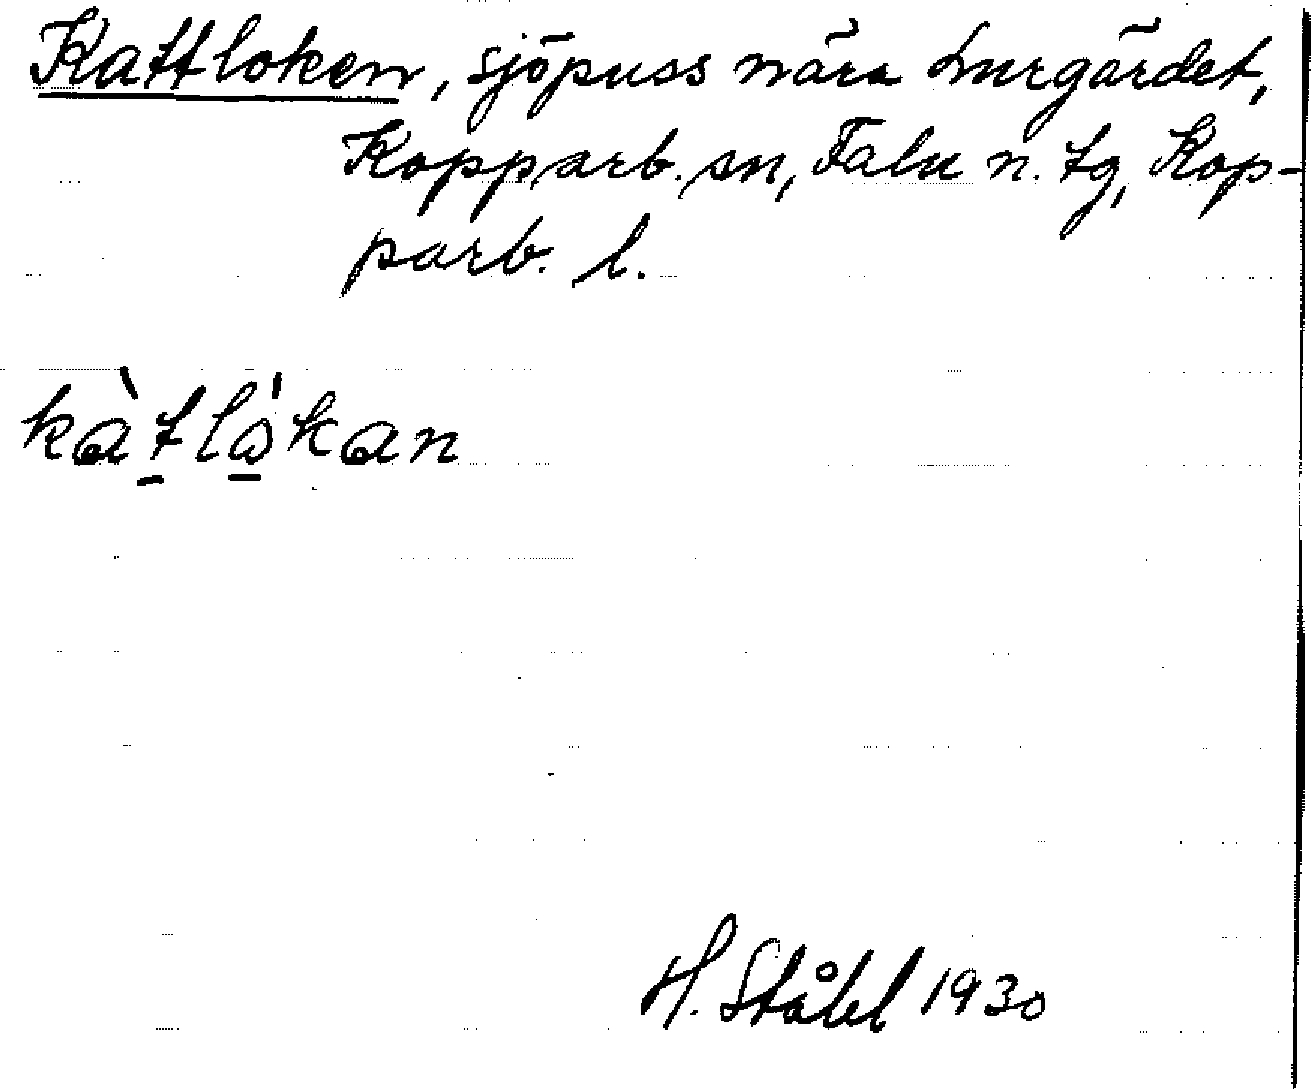 Kattloken, sjöpuss nära Lurgärdet,
Kopparb. sn, Falu n. tg, Kop-
parb. l.
kàtlákan
H. Ståhl 1930